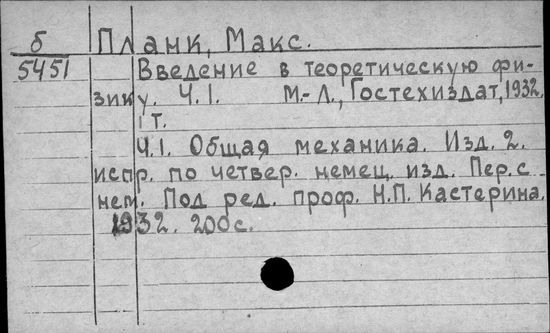 б Планк, Макс.
5451 Введение в теоретическую фи-
зику. Ч.1. М.-Л., Гостехиздат, 1932.
1 т.
Ч.1. Общая механика. Изд. 2.
испр. по четвер. немец. изд. Пер. с
нем. Под ред. проф. Н.П. Кастерина.
1932. 200 с.